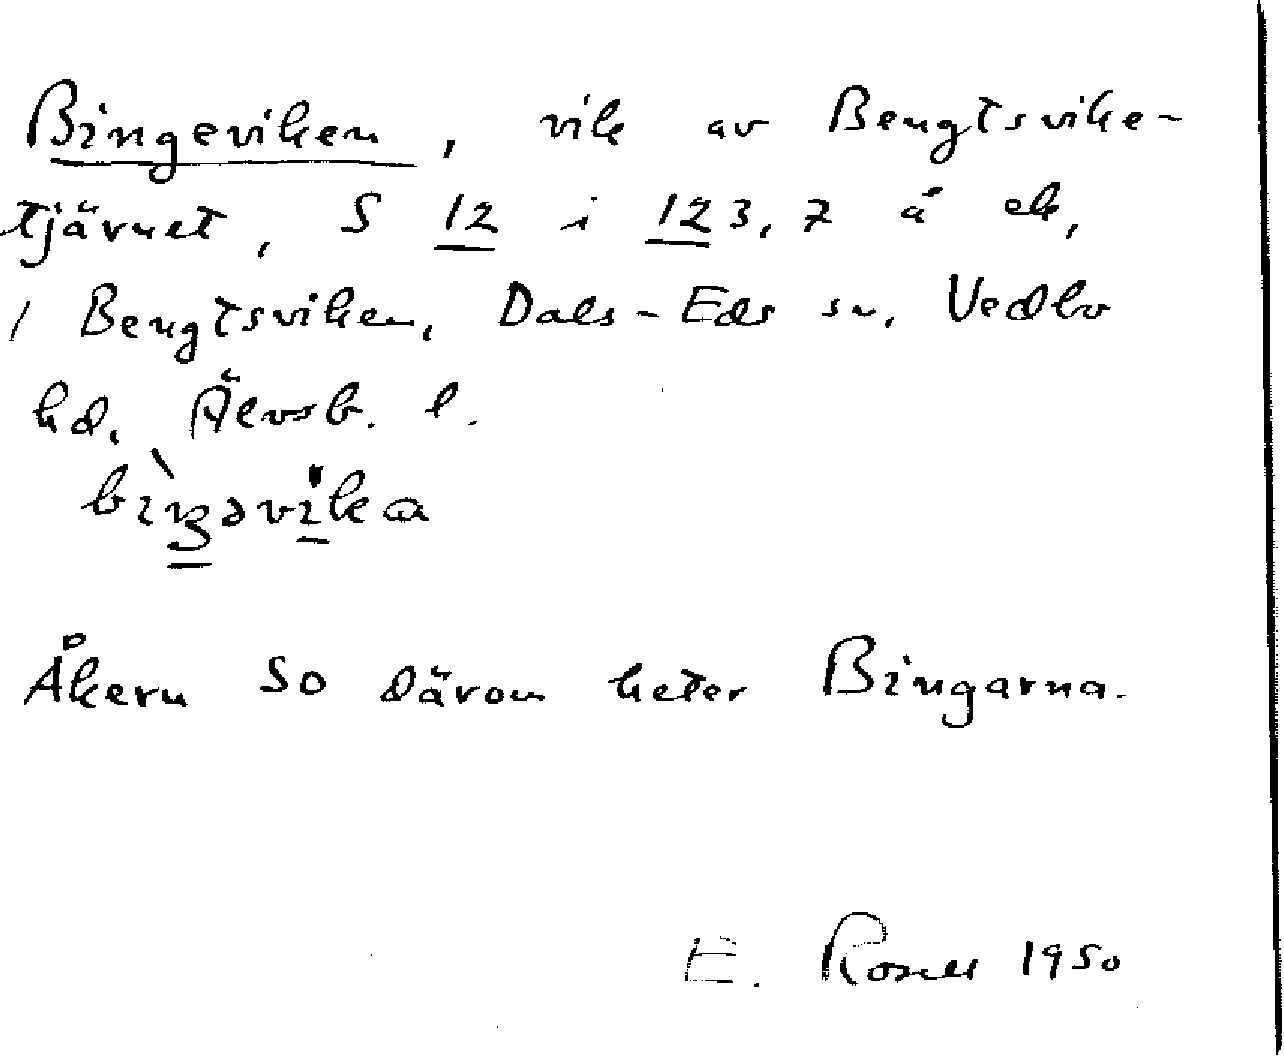 Bingeviken, vik av Bengtsvike-
tjärnet, S 12 i 123,7 å ek,
/ Bengtsviken, Dals-Eds sn, Vedbo
hd. Älvsb. l.
bìŋəvìka
Åkern SO därom heter Bingarna.
E. Rosell 1950